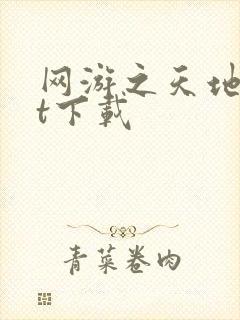 网游之天地
t下载
青菜卷肉